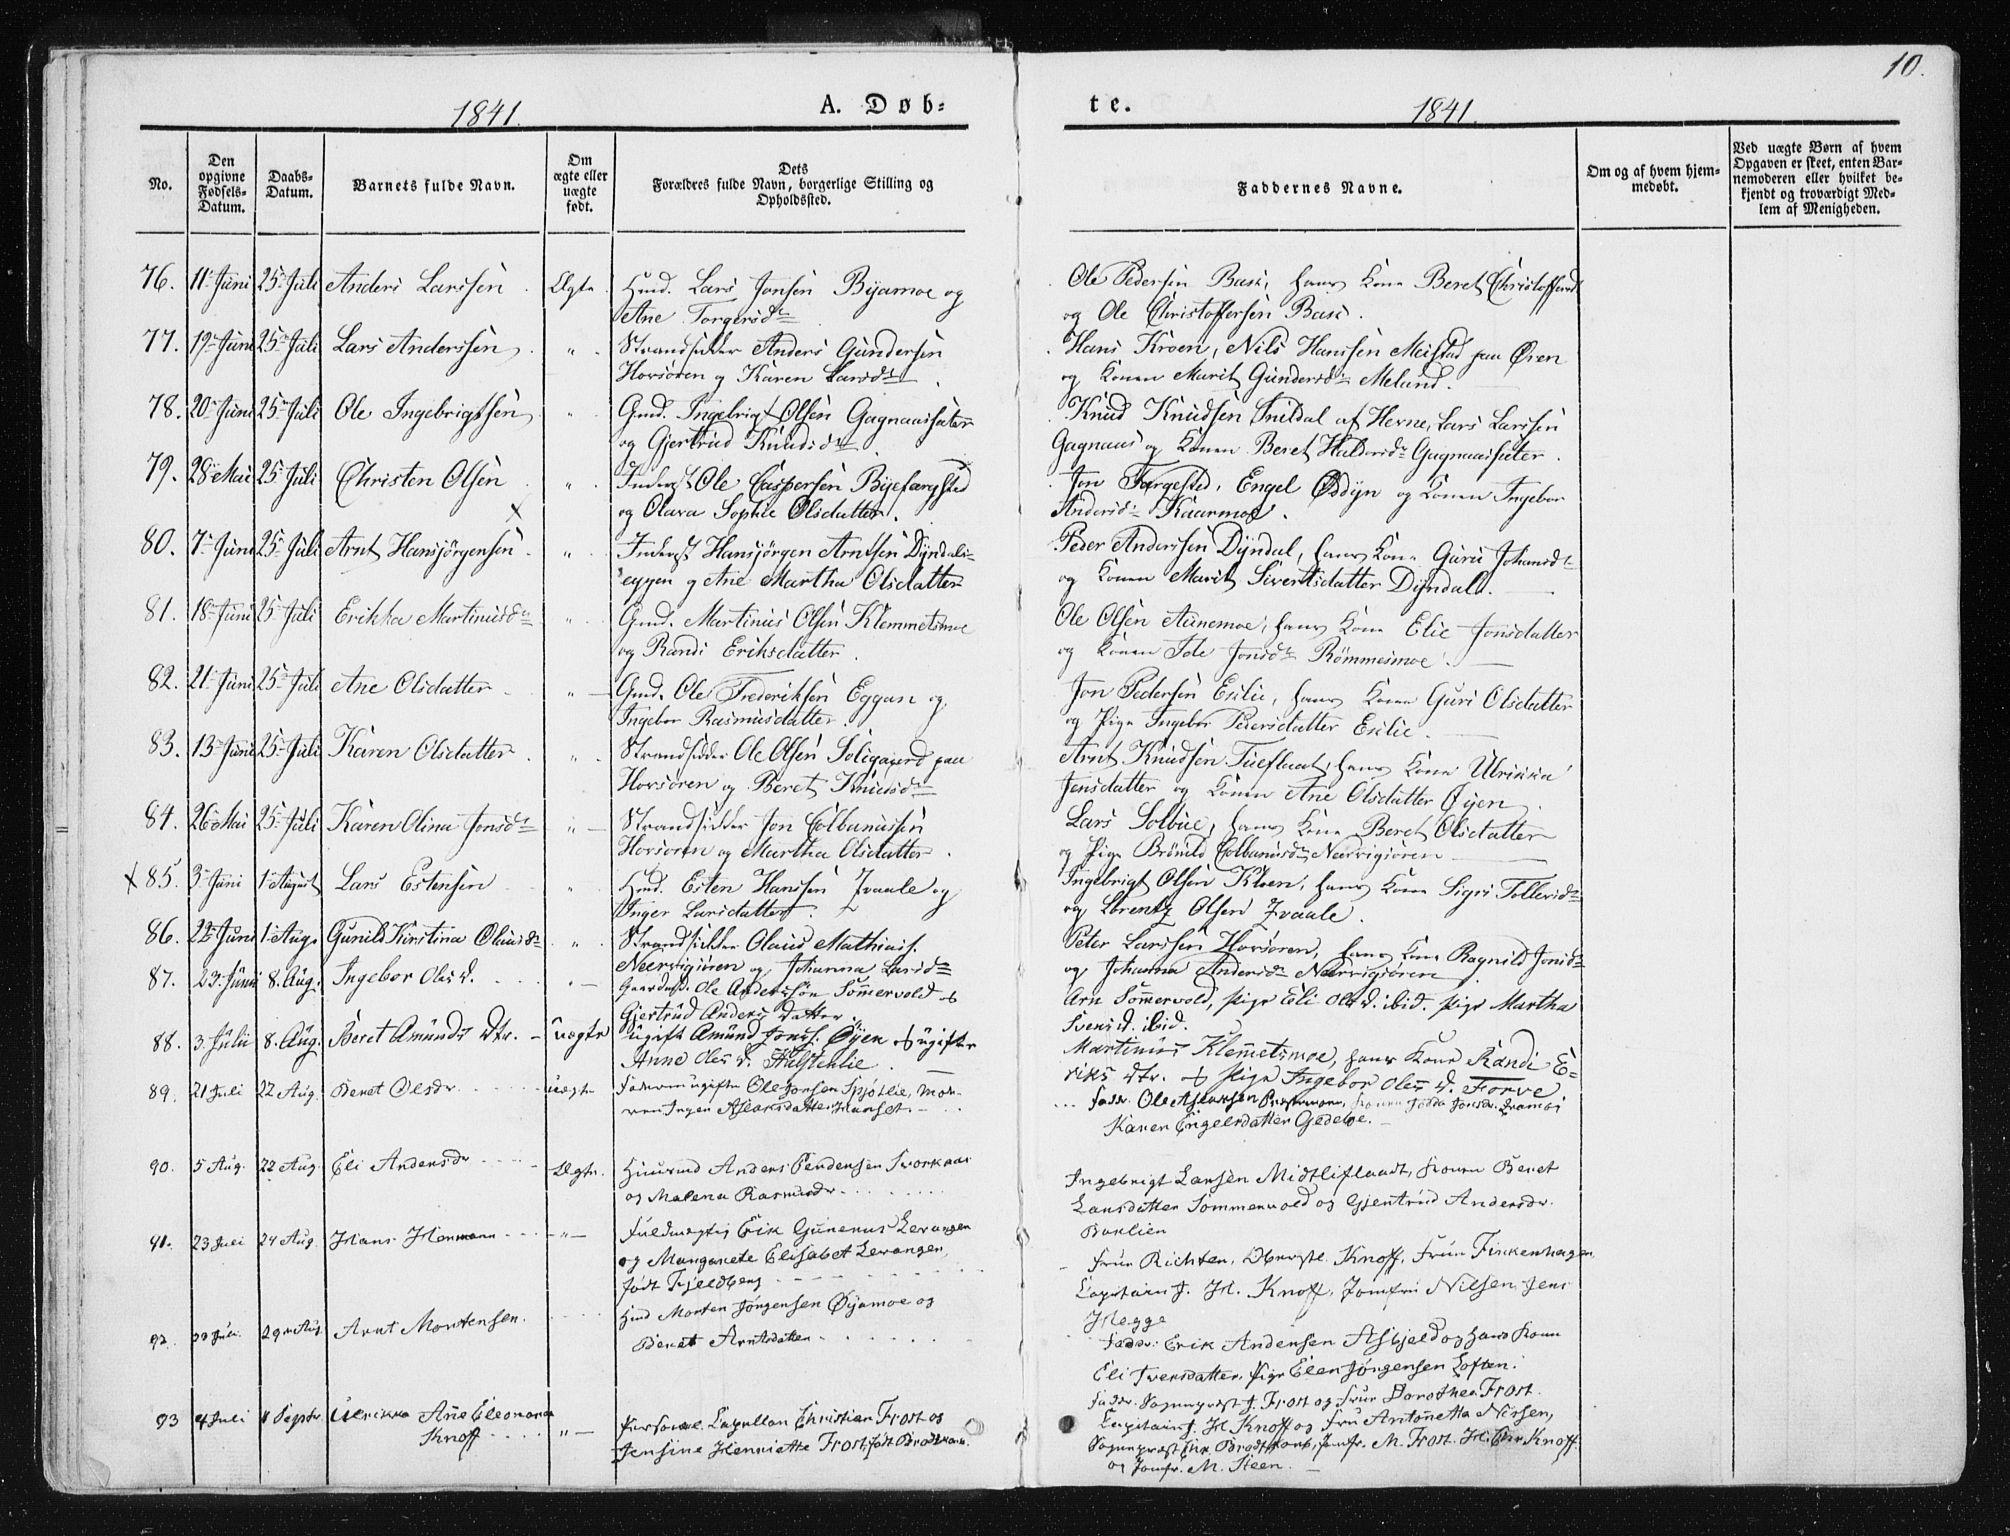 10.
1841. A. Døb=
te. 1841.
No.
Den opgivne Fødsels-Datum.
Daabs-Datum.
Barnets fulde Navn.
Om ægte eller uægte født.
Dets Forældres fulde Navn, borgerlige Stilling og Opholdssted.
Faddernes Navne.
Om og af hvem hjemmedøbt.
Ved uægte Børn af hvem Opgaven er skeet, enten Barnemoderen eller hvilket bekjendt og troværdigt Medlem af Menigheden.
76. 11 Juni 25 Juli Anders Larssen Ægte Huusmd. Lars Jonsen Byamoe og
Ane Torgersdr
Ole Pedersen hans Kone Beret Christoffersd
og Ole Christoffersen
77. 19 Juni 25 Juli Lars Anderssen " Strandsidder Anders Gundersen
Horsøren og Karen Larsdr
Hans Kroen, Nils Hanssen Meistad paa Øren
og Konen Marit Gundersdr Melund.
78. 20 Juni 25 Juli Ole Ingebrigtsen " Gmd. Ingebrigt Olsen Gagnaassæter
og Gjertrud Knudsdr
Knud Knudsen Snildal af Herne, Lars Larssen
Gagnaas og Konen Beret Haldorsdr Gagnaassæter.
79. 28 Mai 25 Juli Christen Olsen " Inderst Ole Caspersen
og Olava Sophie Olsdatter.
Jon Fargested, Engel og Konen Ingebor
Andersdr Kaarmoe.
80. 7 Juni 25 Juli Arnt Hansjörgensen " Inderst Hansjörgen Arntsen Dyndals-
eggen og Ane Martha Olsdatter
Peder Anderssen Dyndal, hans Kone Guru Johansdr
og Konen Marit Sivertsdatter Dyndal.
81. 18 Juni 25 Juli Erikka Martinusdr " Gmd. Martinus Olsen Klemmetsmoe
og Randi Eriksdatter.
Ole Olsen Aunemoe, hans Kone Elie Jonsdatter
og Konen Jonsdr Römmesmoe.
82. 21 Juni 25 Juli Ane Olsdatter " Gmd. Ole Frederiksen Eggan og
Ingebor Rasmusdatter.
Jon Pedersen Eslie, hans Kone Guri Olsdatter
og Pige Ingebor Pedersdatter Eslie.
83. 13 Juni 25 Juli Karen Olsdatter " Strandsidder Ole Olsen Soligaard paa
Horsøren og Beret Knudsdr
Arnt Knudsen Tueflaat, hans Kone Ulrikka
Jensdatter og Konen Ane Olsdatter Øyen.
84. 26 Mai 25 Juli Karen Olina Jonsdr " Strandsidder Jon Colbanussen
Horsøren og Martha Olsdatter.
Lars Solbue, hans Kone Beret Olsdatter
og Pige Brönild Colbanusdr Nervigsören
85. 3 Juni 1 August Lars Estensen " Huusmd. Esten Hanssen Qvaale og
Inger Larsdatter.
Ingebrigt Olsen Kleen, hans Kone Sigri Tollevsdr
og Lorentz Olsen Qvaale.
86. 22 Juni 1 Aug. Gunild Kirstina Olausdr " Strandsidder Olaus Mathias.
Nerviguren og Johanna Larsdr
Peter Larssen Horsøren, hans Kone Ragnild Jonsdr
og Johanna Andersdr Nerviguren
87. 23 Juni 8. Aug. Ingebor Ols d. " Gaardmd. Ole Andersøn Sömmervold &
Gjertrud Anders datter
Arn Sömmervold, Pige Eli Ols d. ibid. Pige Martha
Svens d. ibid.
88. 3. Julii 8. Aug. Beret Amunds dtr. uægte ugift Amund Jons. Øyen & ugifte
Anne Ols d. Halstenlie.
Martinus Klemetsmoe, hans Kone Randi E=
riks dtr. & Pige Ingebor Ols d. Forve
89. 21 Juli 22 Aug. Beret Olsdr uægte Faderen ugifte Ole Jonsen Sjøtlie, Mo-
ren Inger Aslaksdatter
Fadr. Ole Aslaksen Jonsdr.
Karen Engelsdatter Gedeboe.
90. 5 Aug. 22 Aug. Eli Andersdr Ægte Huusmd Anders Pedersen
og Malena Rasmusdr
Ingebrigt Larsen Midtliflaadt, Konen Beret
Larsdatter Sommervold og Gjertrud Andersdr.
Baklien
91. 23 Juli 24 Aug. Hans Hermann " Fuldmægtig Erik Gunerus Levangen
og Margarete Elisabet Levangen,
født Fjeldberg
Frue Richter, Oberstl. Knoff, Frue Finkenhagen,
Capitain J. H. Knoff, Jomfru Nilsen, Jens
Hegge
92. Juli 29 Aug Arnt Mortensen. Hmd Morten Jörgensen Øyamoe og
Beret Arntsdatter
Faddr: Erik Andersen Asbjeld og hans Kone
Eli Iversdatter, Pige Elen Jörgensen Loften.
93 4 Juli Septr. Ulrikke Ane Eleonora
Knoff " Personel Capellan Christian Frost og
Jensine Henriette Frost, født
Fadr. Sognepræst J. Frost og Frue Dorothea Frost.
Capitain J. H. Knoff og Fru Antonetta Nissen,
Sognepræst Jomfr. M. Frost. Knoff
og Jomfr. M. Steen.